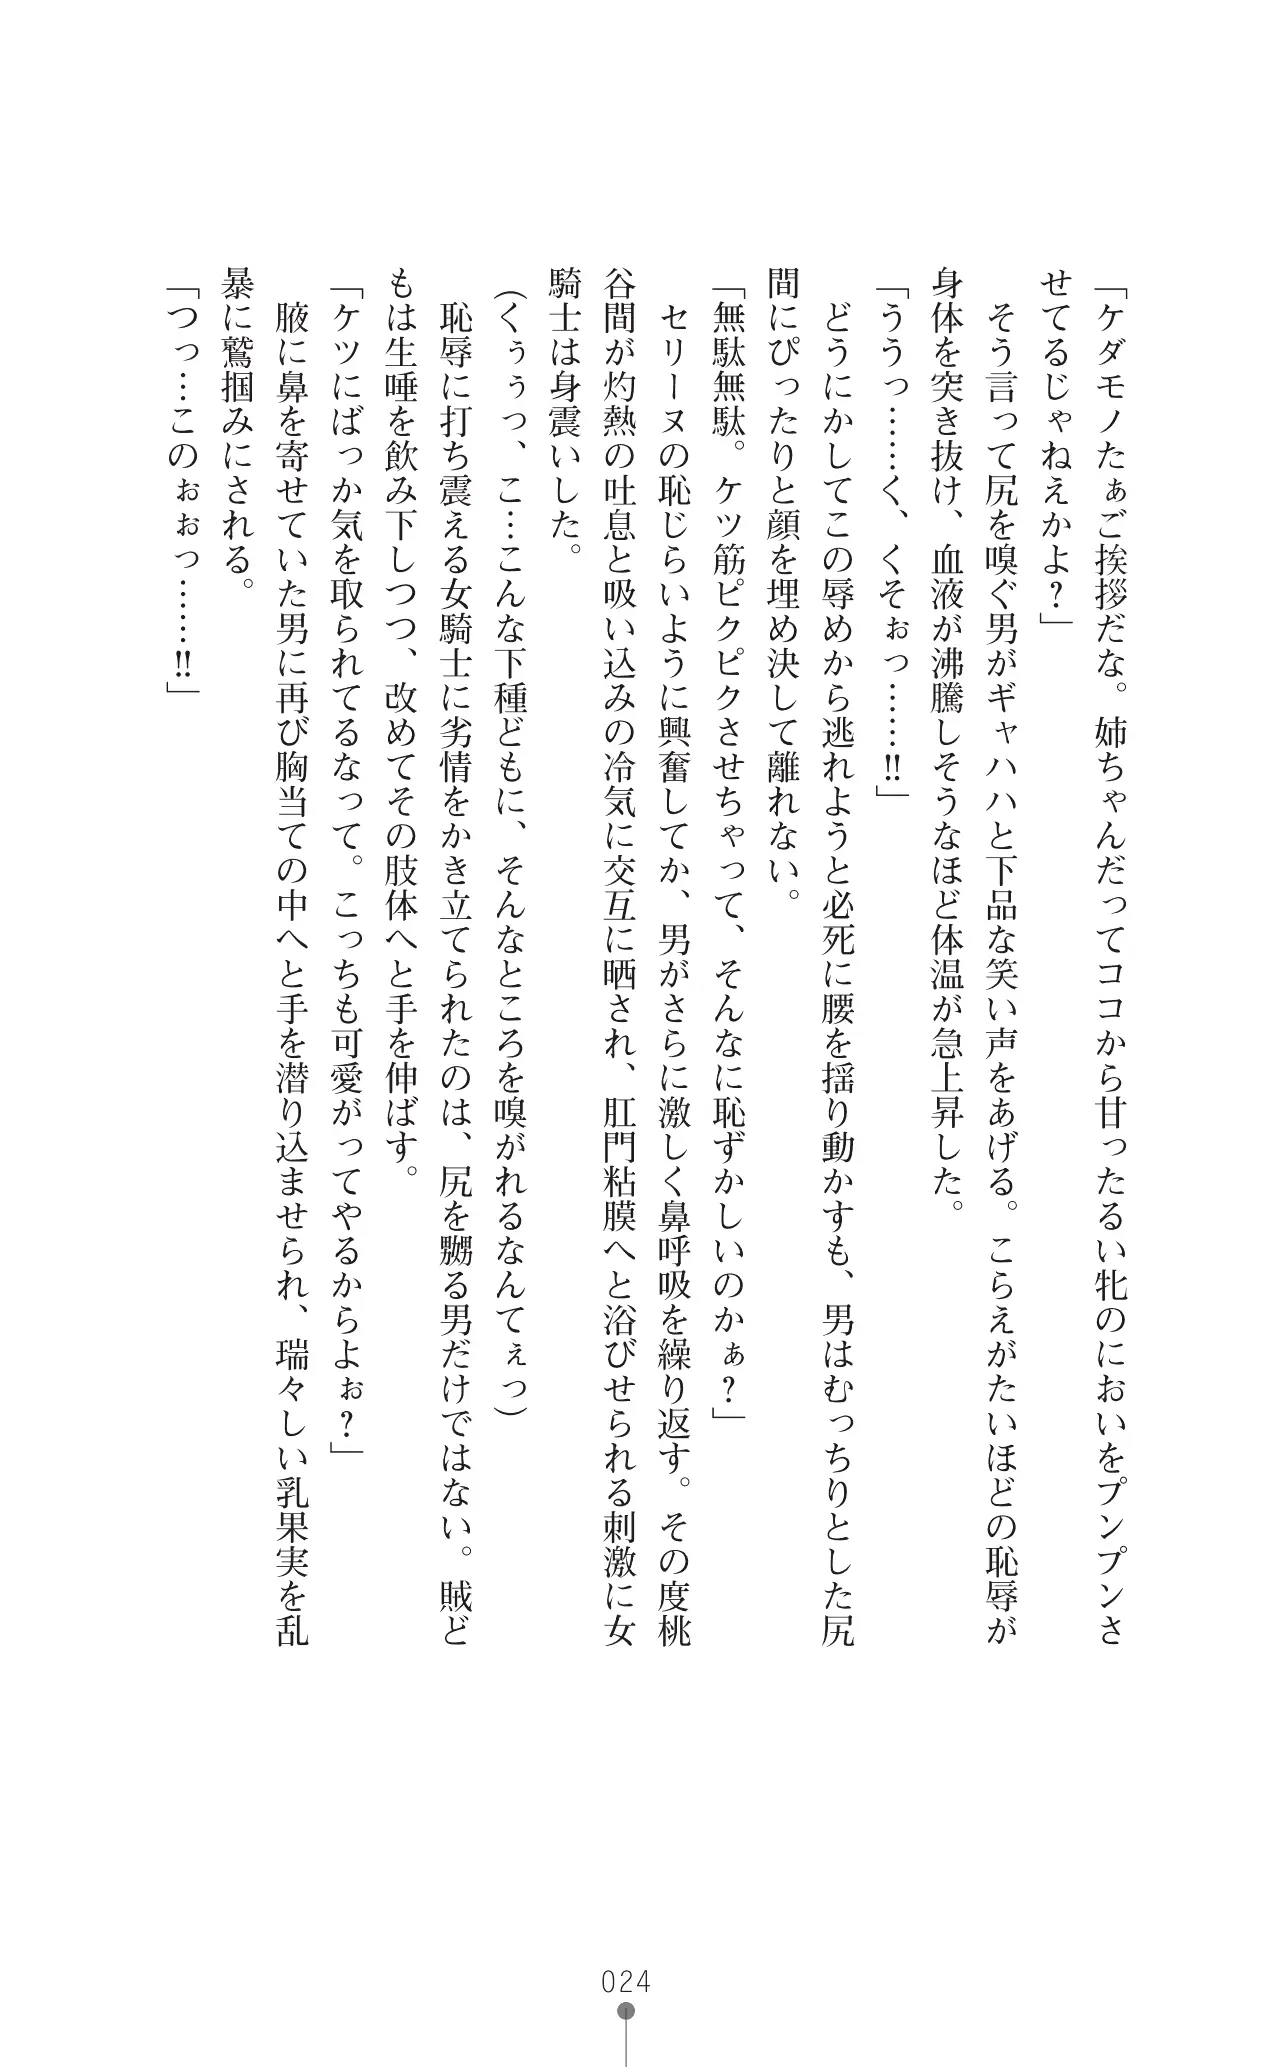 「ケダモノたぁご挨拶だな。姉ちゃんだってココから甘ったるい牝のにおいをプンプンさ
せてるじゃねえかよ？」
　そう言って尻を嗅ぐ男がギャハハと下品な笑い声をあげる。こらえがたいほどの恥辱が
身体を突き抜け、血液が沸騰しそうなほど体温が急上昇した。
「ううっ……く、くそぉっ……‼」
　どうにかしてこの辱めから逃れようと必死に腰を揺り動かすも、男はむっちりとした尻
間にぴったりと顔を埋め決して離れない。
「無駄無駄。ケツ筋ピクピクさせちゃって、そんなに恥ずかしいのかぁ？」
　セリーヌの恥じらいように興奮してか、男がさらに激しく鼻呼吸を繰り返す。その度桃
谷間が灼熱の吐息と吸い込みの冷気に交互に晒され、肛門粘膜へと浴びせられる刺激に女
騎士は身震いした。
（くぅぅっ、こ…こんな下種どもに、そんなところを嗅がれるなんてぇっ）
　恥辱に打ち震える女騎士に劣情をかき立てられたのは、尻を嬲る男だけではない。賊ど
もは生唾を飲み下しつつ、改めてその肢体へと手を伸ばす。
「ケツにばっか気を取られてるなって。こっちも可愛がってやるからよぉ？」
　腋に鼻を寄せていた男に再び胸当ての中へと手を潜り込ませられ、瑞々しい乳果実を乱
暴に鷲掴みにされる。
「つっ…このぉぉっ……‼」
024